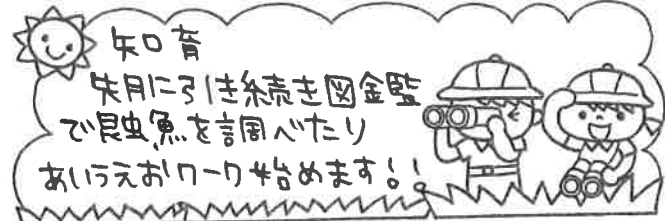 知育
先月に引き続き図鑑
で昆虫魚を調べたり
あいうえおワーク始めます！！